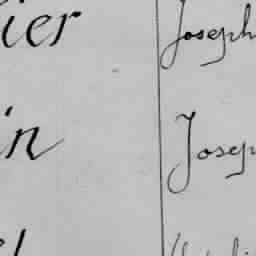 ier Joseph
in Josep